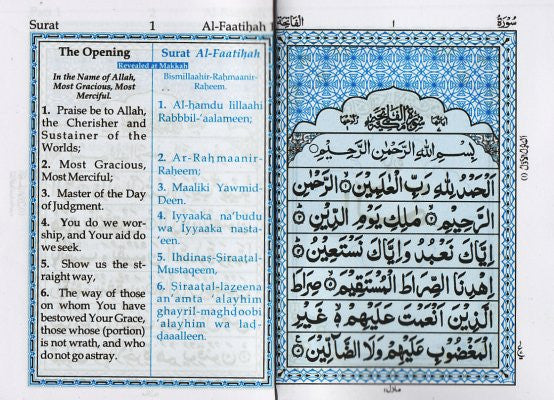 Surat 1 Al-Faatiḥah 1
The Opening
Revealed at Makkah
In the Name of Allah,
Most Gracious, Most
Merciful.
1. Praise be to Allah,
the Cherisher and
Sustainer of the
Worlds;
2. Most Gracious,
Most Merciful;
3. Master of the Day
of Judgment.
4. You do we wor-
ship, and Your aid do
we seek.
5. Show us the st-
raight way,
6. The way of those
on whom You have
bestowed Your Grace,
those whose (portion)
is not wrath, and who
do not go astray.
Surat Al-Faatiḥah
Bismillaahir-Raḥmaanir-
Raḥeem.
1. Al-ḥamdu lillaahi
Rabbbil-‘aalameen;
2. Ar-Raḥmaanir-
Raḥeem;
3. Maaliki Yawmid-
Deen.
4. Iyyaaka na‘budu
wa Iyyaaka nasta-
‘een.
5. Ihdinaṣ-Ṣiraaṭal-
Mustaqeem,
6. Ṣiraaṭal-lazeena
an‘amta ‘alayhim
ghayril-maghḍoobi
‘alayhim wa laḍ-
ḍaaalleen.
الفاتحة ١ سُورَة
بِسْمِ اللهِ الرَّحْمٰنِ الرَّحِيْمِ
اَلْحَمْدُ لِلّٰهِ رَبِّ الْعٰلَمِيْنَ ۙ الرَّحْمٰنِ
الرَّحِيْمِ ۙ مٰلِكِ يَوْمِ الدِّيْنِ ؕ
اِيَّاكَ نَعْبُدُ وَاِيَّاكَ نَسْتَعِيْنُ ؕ
اِهْدِنَا الصِّرَاطَ الْمُسْتَقِيْمَ ۙ صِرَاطَ
الَّذِيْنَ اَنْعَمْتَ عَلَيْهِمْ ۙ غَيْرِ
الْمَغْضُوْبِ عَلَيْهِمْ وَلَا الضَّآلِّيْنَ